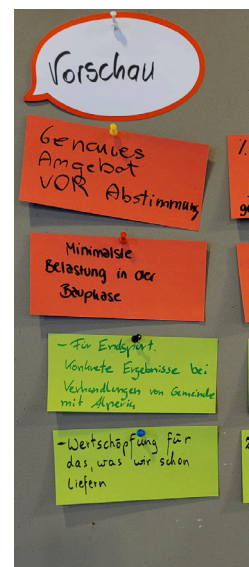 Vorschau
Genaues
Angebot
VOR Abstimmung
Minimalste
Belastung in der
Bauphase
- Für Endspurt.
Konkrete Ergebnisse bei
Verhandlungen von Gemeinde
mit Alperia
- Wertschöpfung für
das, was wir schon
liefern